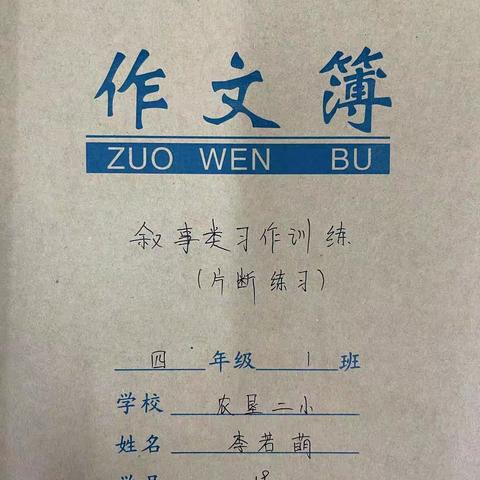 作文簿
ZUO WEN BU
叙事类习作训练
(片断练习)
四年级1班
学校 农垦二小
姓名 李若萌